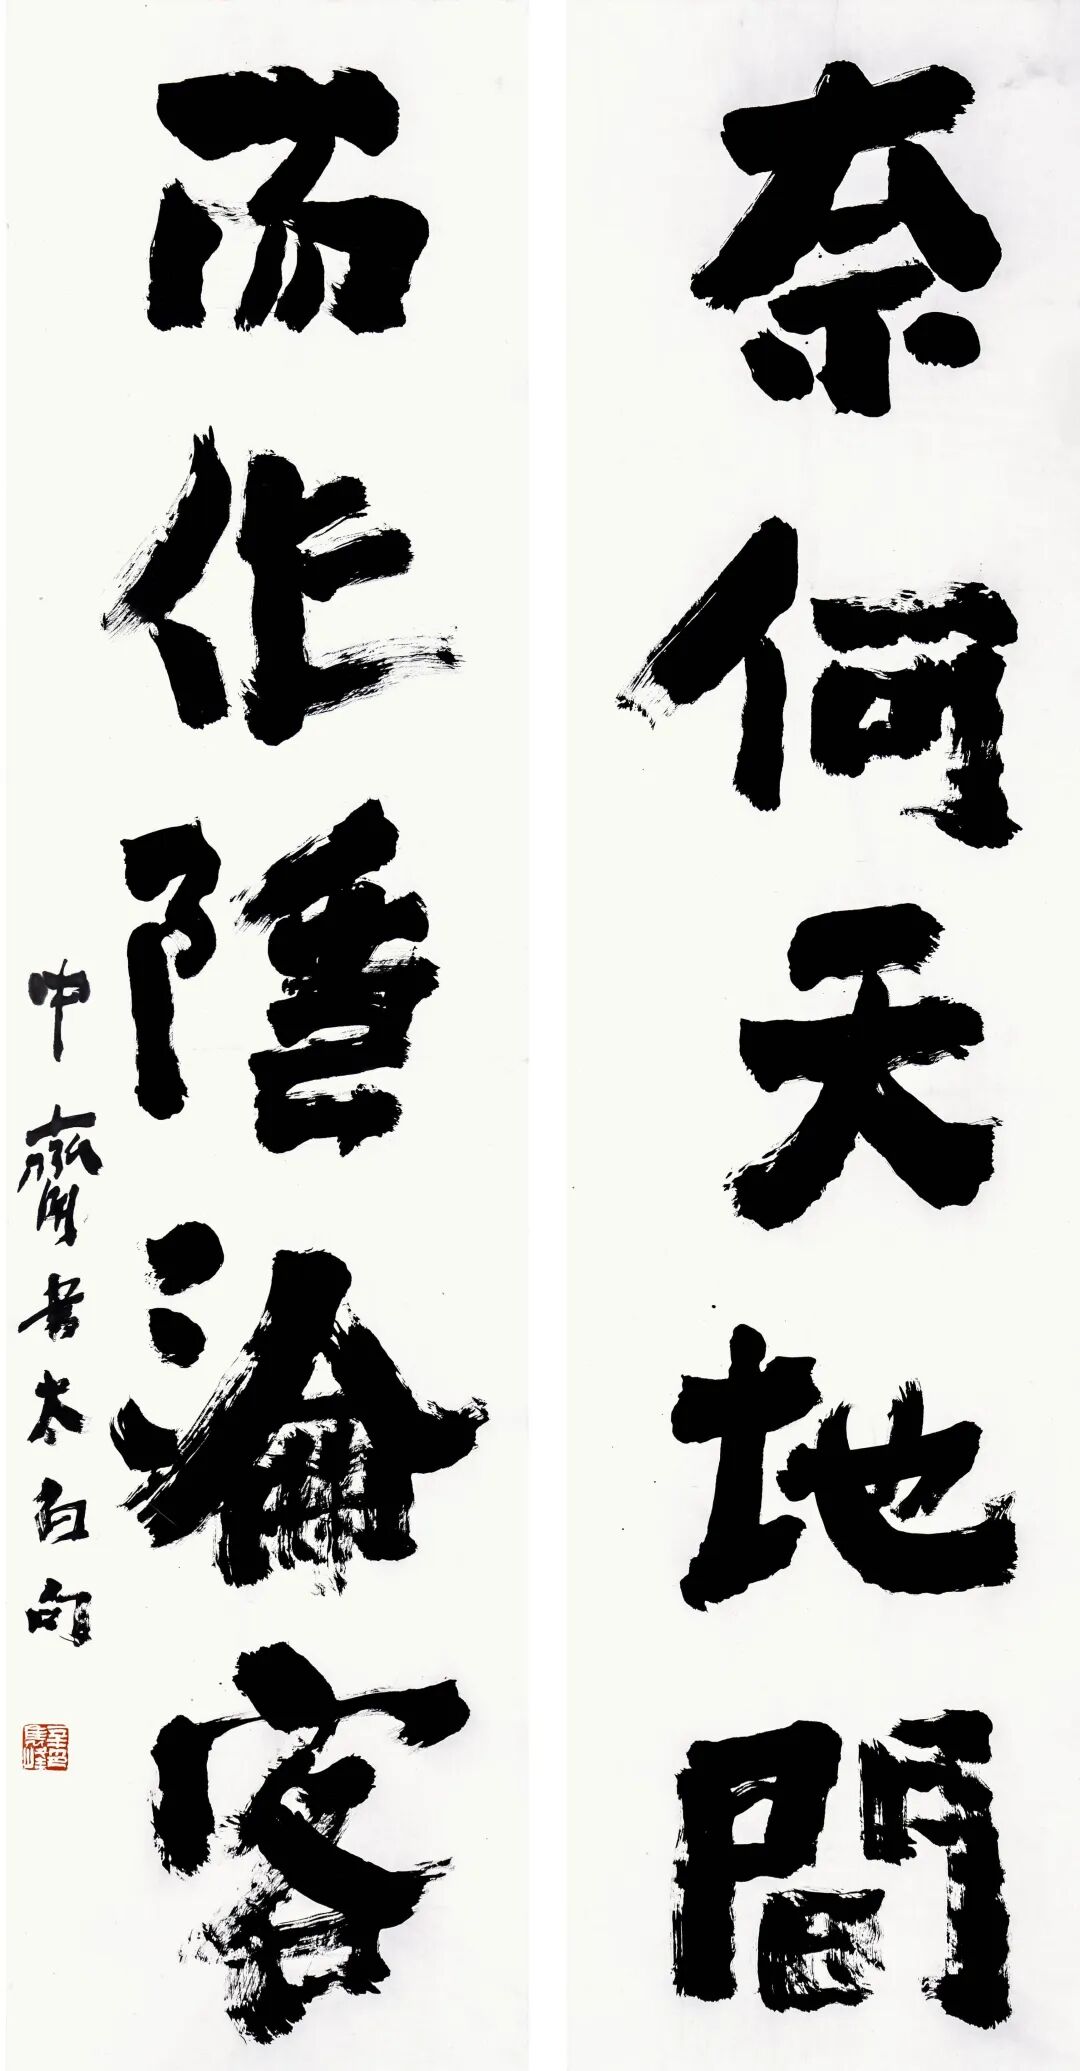 奈何天地間
而作隱淪客
中齋書太白句